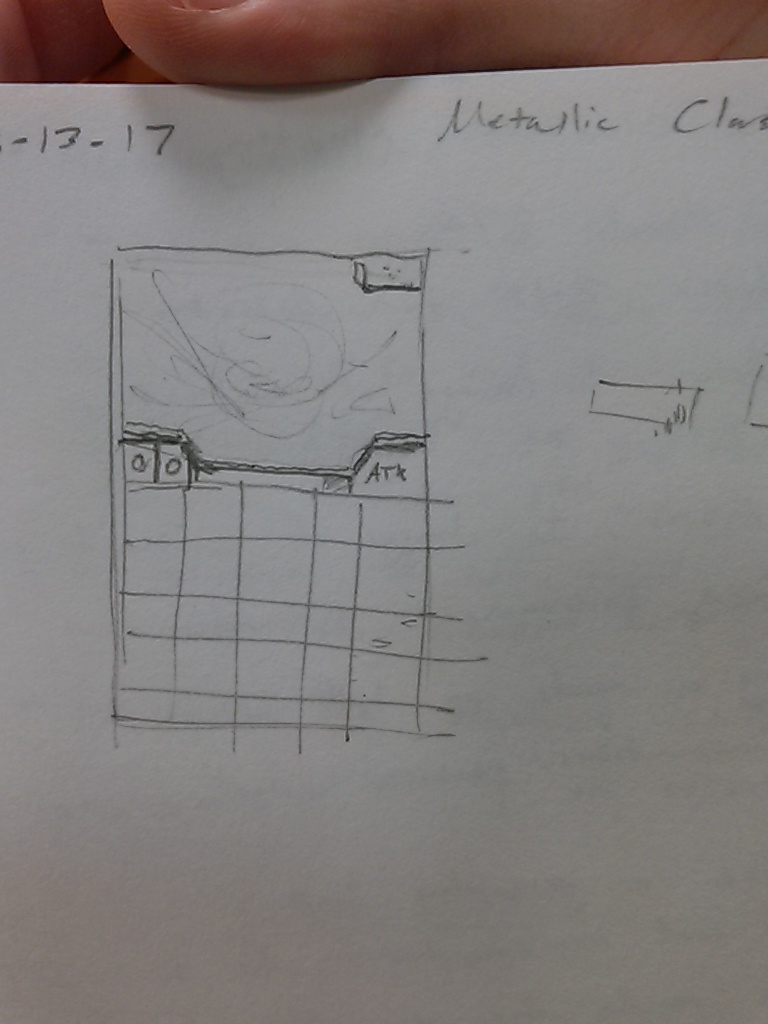 -13-17
Metallic Clas
O O
ATK